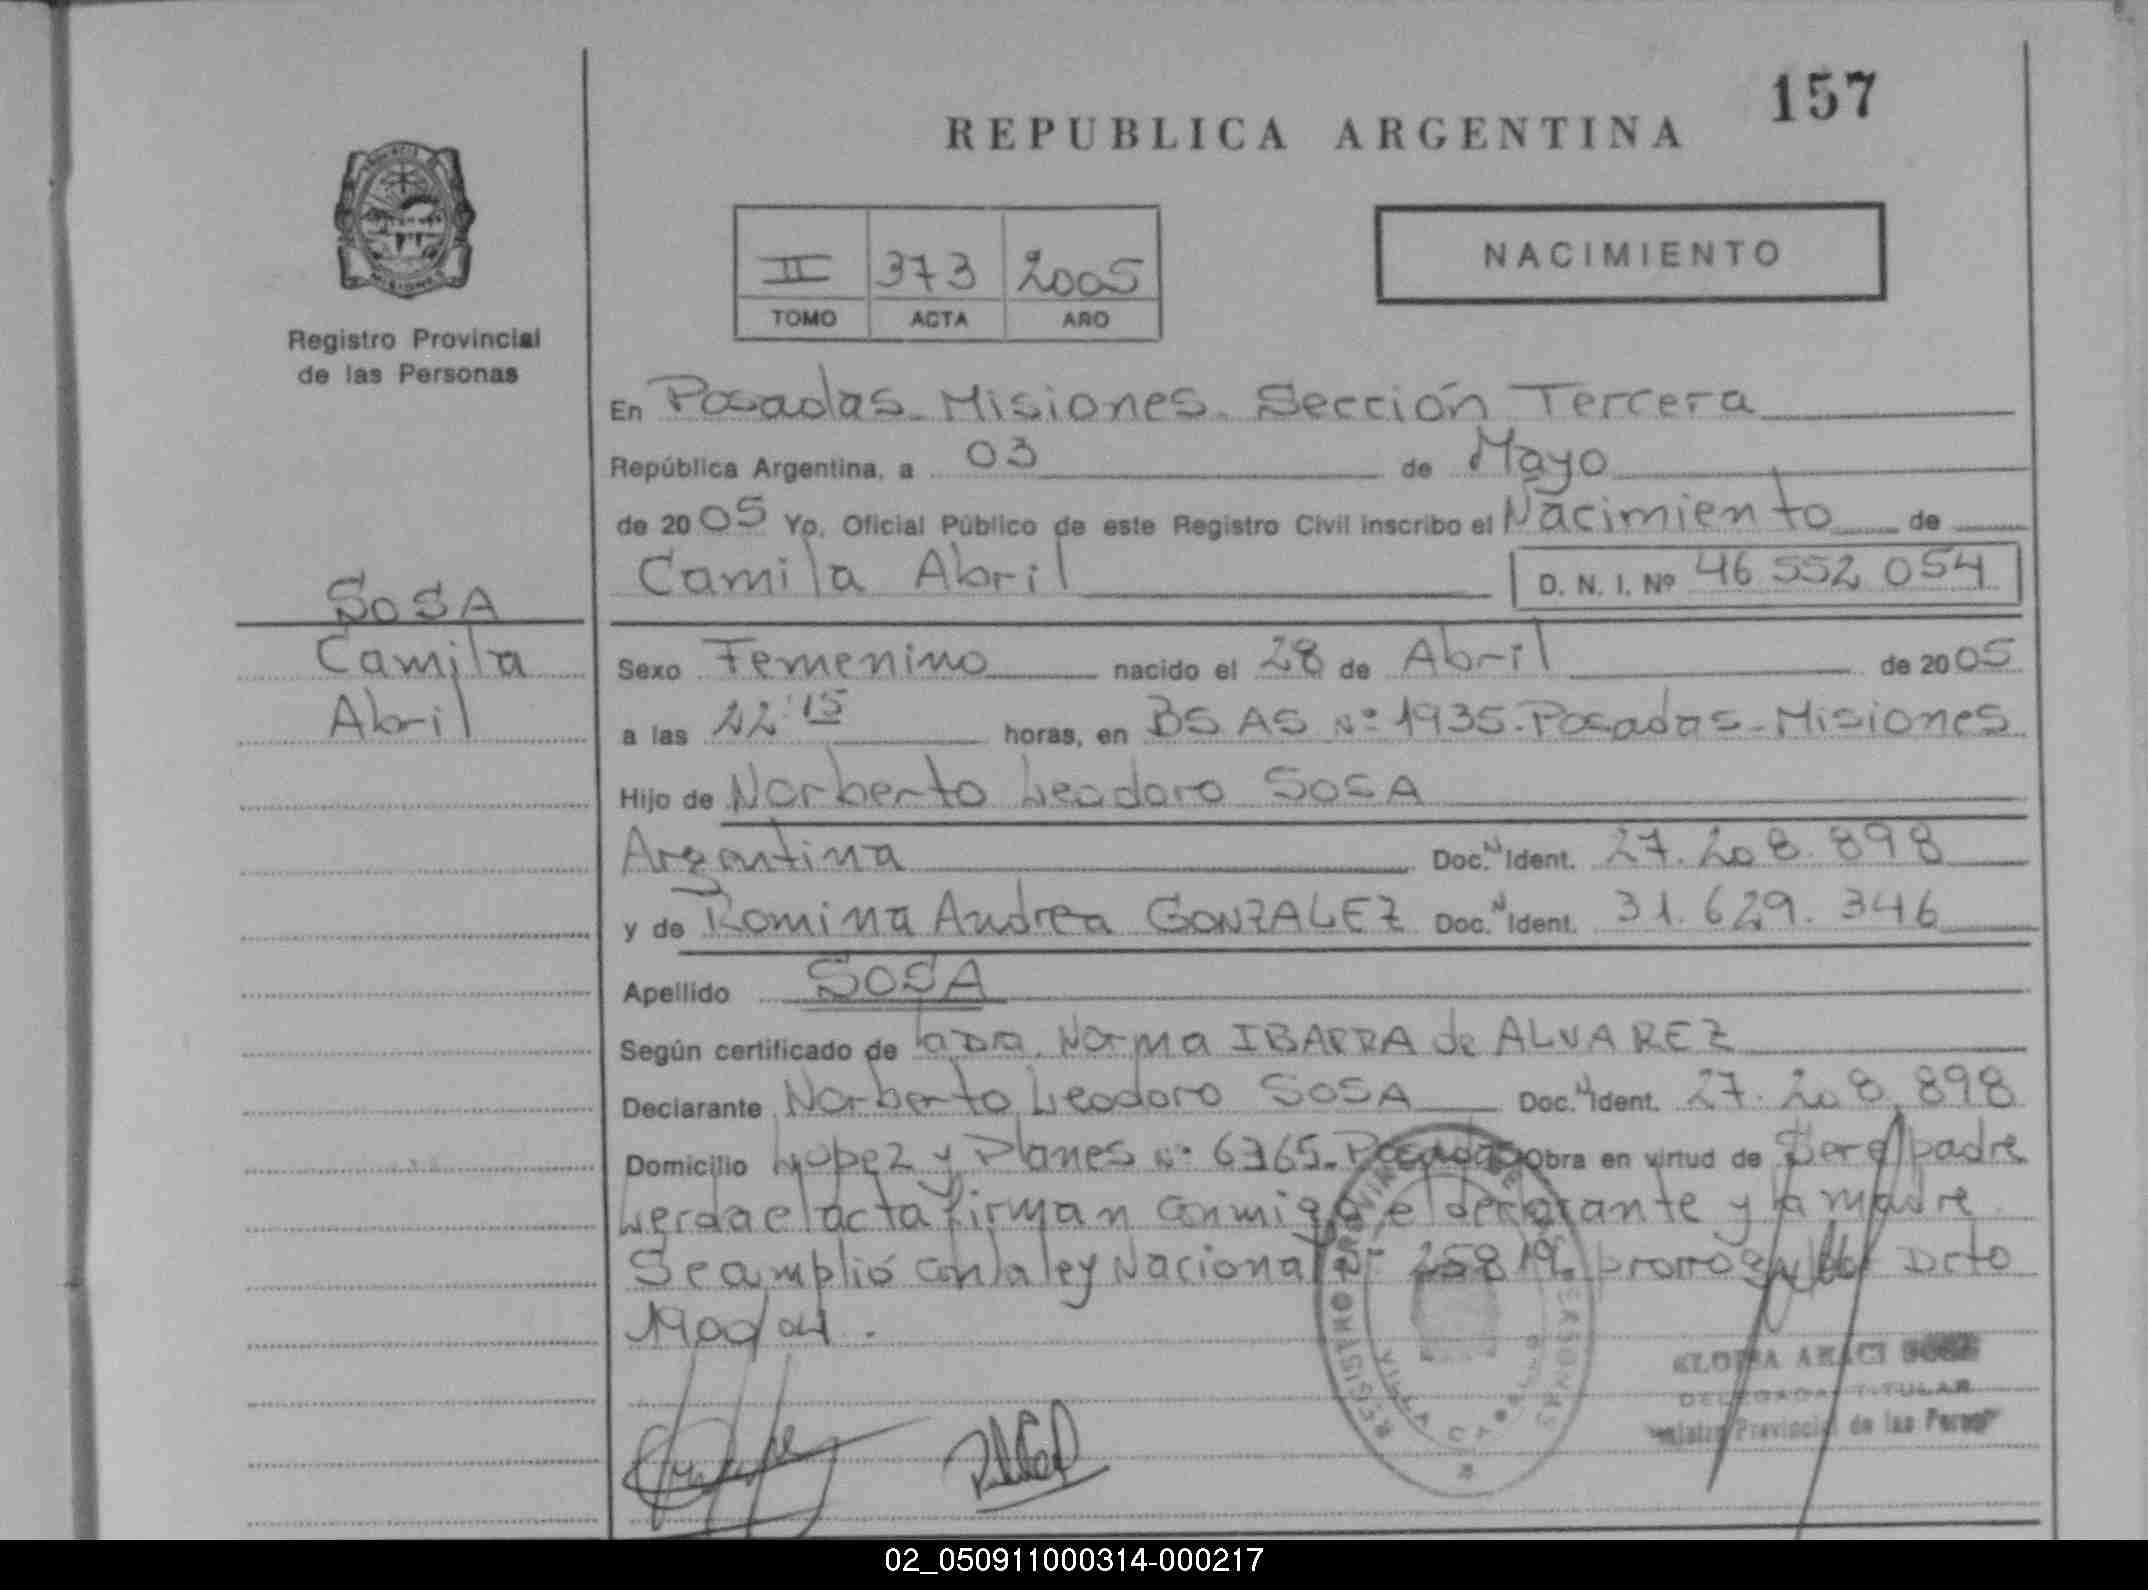 157
REPUBLICA ARGENTINA
II 373 2005
TOMO ACTA AÑO
NACIMIENTO
Registro Provincial
de las Personas
En Posadas - Misiones - Sección Tercera
República Argentina, a 03 de Mayo
de 2005 Yo, Oficial Público de este Registro Civil inscribo el Nacimiento de
Camila Abril D. N. I. Nº 46 552 054
SOSA
Camila
Abril
Sexo Femenino nacido el 28 de Abril de 2005
a las 22:15 horas, en BS AS Nº 1935 - Posadas - Misiones
Hijo de Norberto Leodoro SOSA
Argentina Doc. N Ident. 27.208.898
y de Romina Andrea GONZALEZ Doc. N Ident. 31.629.346
Apellido SOSA
Según certificado de la Dra. Norma IBARRA de ALVAREZ
Declarante Norberto Leodoro SOSA Doc. N Ident. 27.208.898
Domicilio Lopez y Planes Nº 6365 - Posadas Obra en virtud de Ser el padre
Leida el acta firman conmigo el declarante y la madre.
Se amplió con la ley Nacional Nº 25819, Dcto
1900/04.
REGISTRO PROVINCIAL DE PERSONAS
DELEGADA TITULAR
Registro Provincial de las Personas
02_050911000314-000217